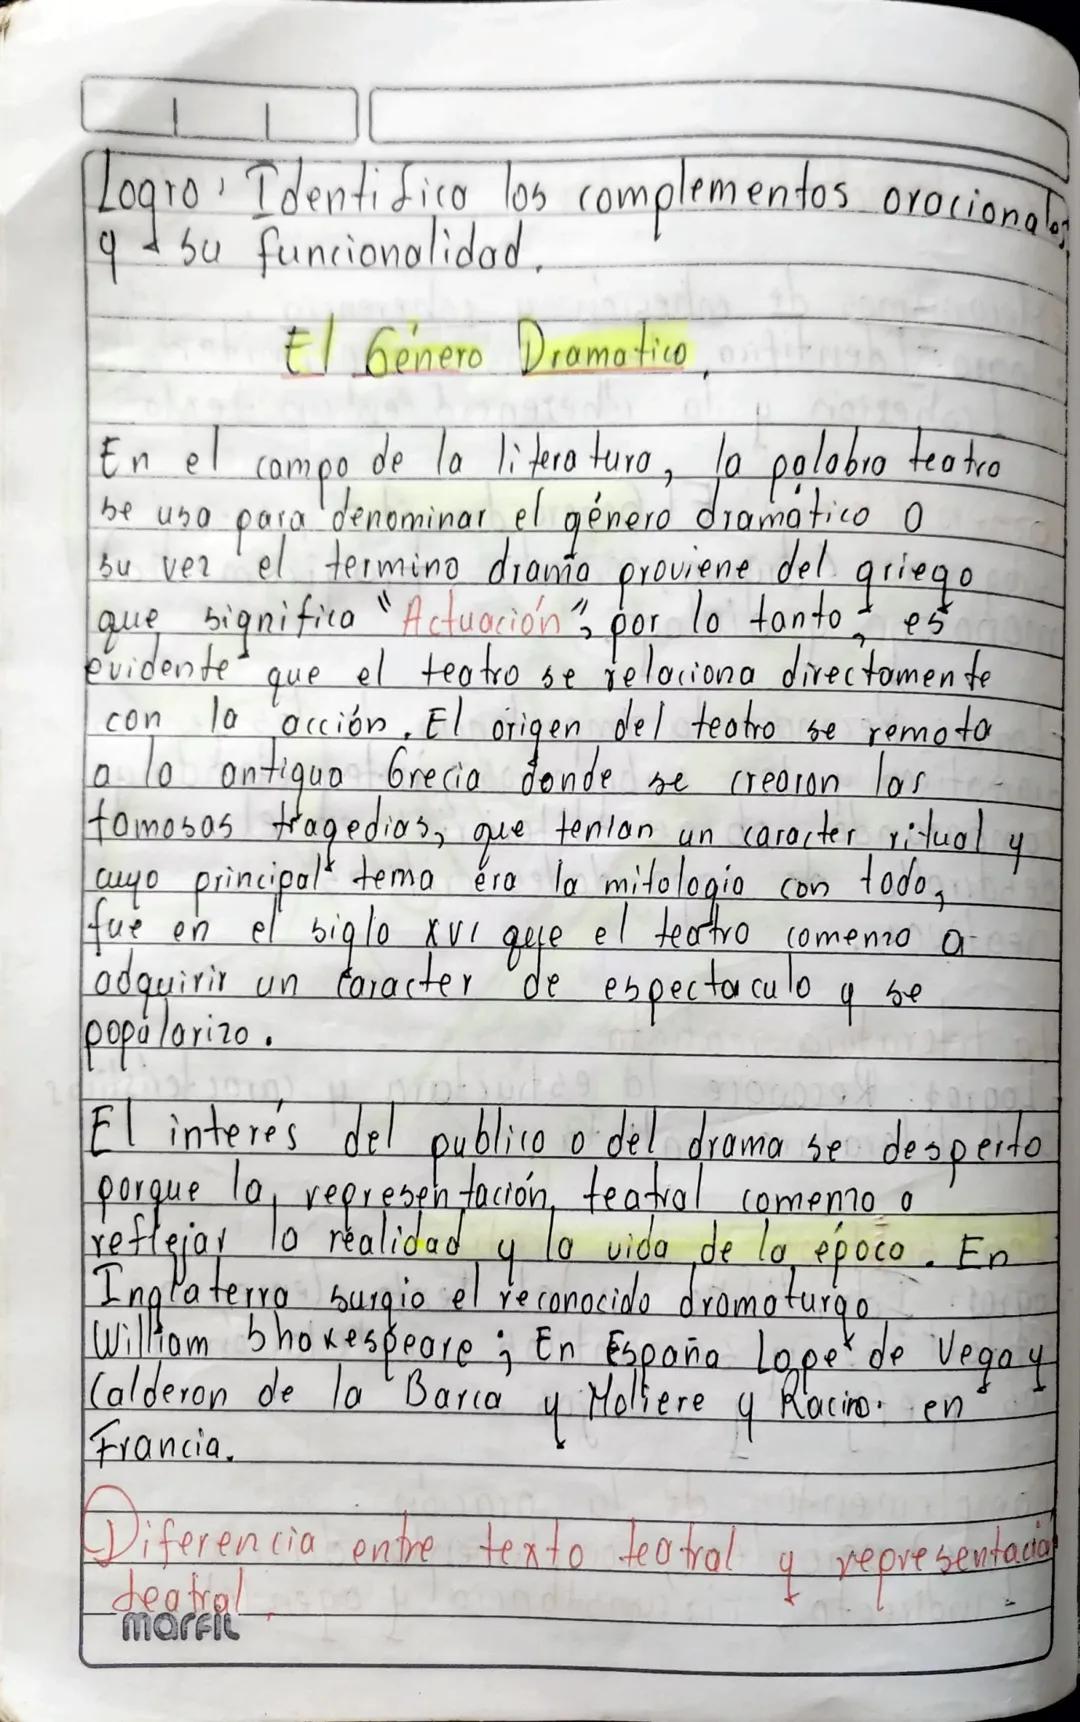 Logro: Identifico los complementos oracionales
y su funcionalidad.
El Género Dramatico.
En el campo de la literatura, la palabra teatro
se usa para denominar el género dramático a
su vez el termino drama proviene del griego
que significa "Actuación", por lo tanto, es
evidente que el teatro se relaciona directamente
con la acción. El origen del teatro se remota
a la antigua Grecia donde se crearon las
famosas tragedias, que tenian un caracter ritual y
cuyo principal tema era la mitologia con todo,
fue en el siglo XVI que el teatro comenzo a
adquirir un caracter de espectaculo y se
popularizo.
El interés del publico o del drama se desperto
porque la representación teatral comenzo a
reflejar la realidad y la vida de la época. En
Inglaterra surgio el reconocido dramaturgo
William Shakespeare; En España Lope de Vega y
Calderon de la Barca y Moliere y Racine en
Francia.
Diferencia entre texto teatral y representacion
teatral.
marfil